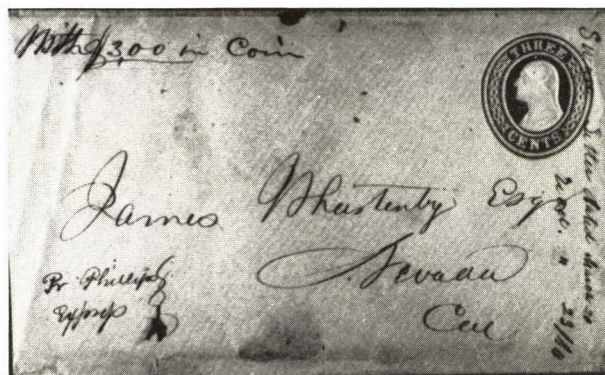 With $3,00 in Coin
THREE
CENTS
James Whartenby Esq
Nevada
Cal
Pr. Phillips
Express